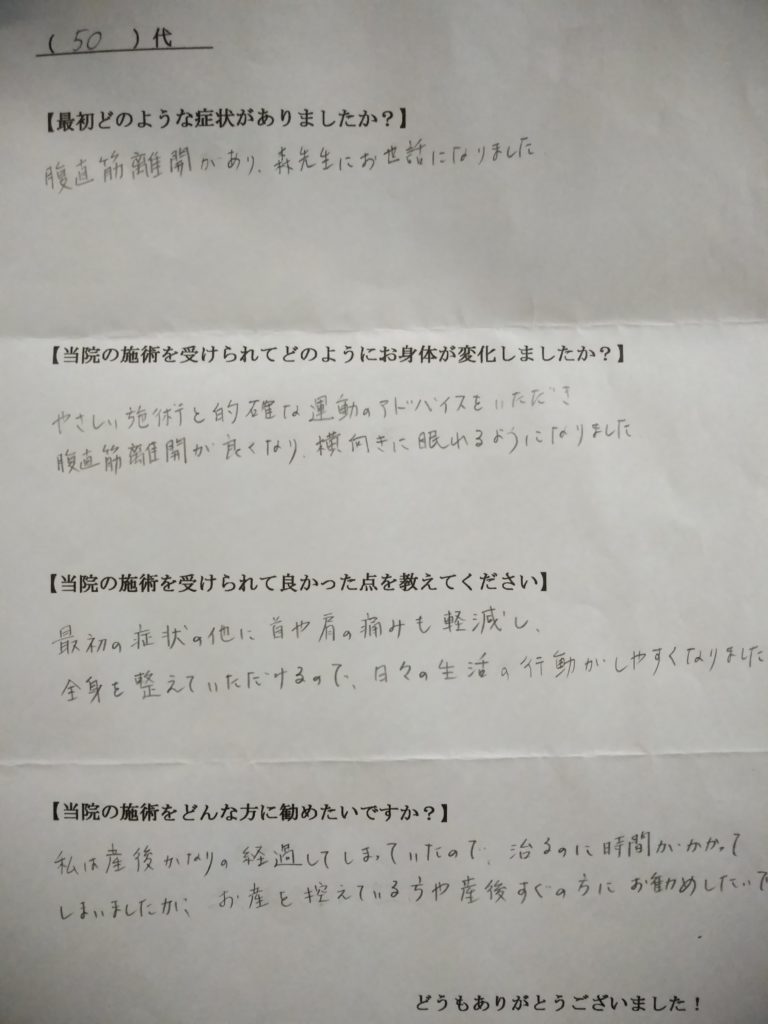 ( 50 ) 代
【最初どのような症状がありましたか？】
腹直筋離開があり、森先生にお世話になりました
【当院の施術を受けられてどのようにお身体が変化しましたか？】
やさしい施術と的確な運動のアドバイスをいただき
腹直筋離開が良くなり、横向きに眠れるようになりました
【当院の施術を受けられて良かった点を教えてください】
最初の症状の他に首や肩の痛みも軽減し、
全身を整えていただけるので、日々の生活の行動がしやすくなりました
【当院の施術をどんな方に勧めたいですか？】
私は産後かなりの経過してしまっていたので、治るのに時間がかかって
しまいましたが、お産を控えている方や産後すぐの方にお勧めしたいで
どうもありがとうございました！